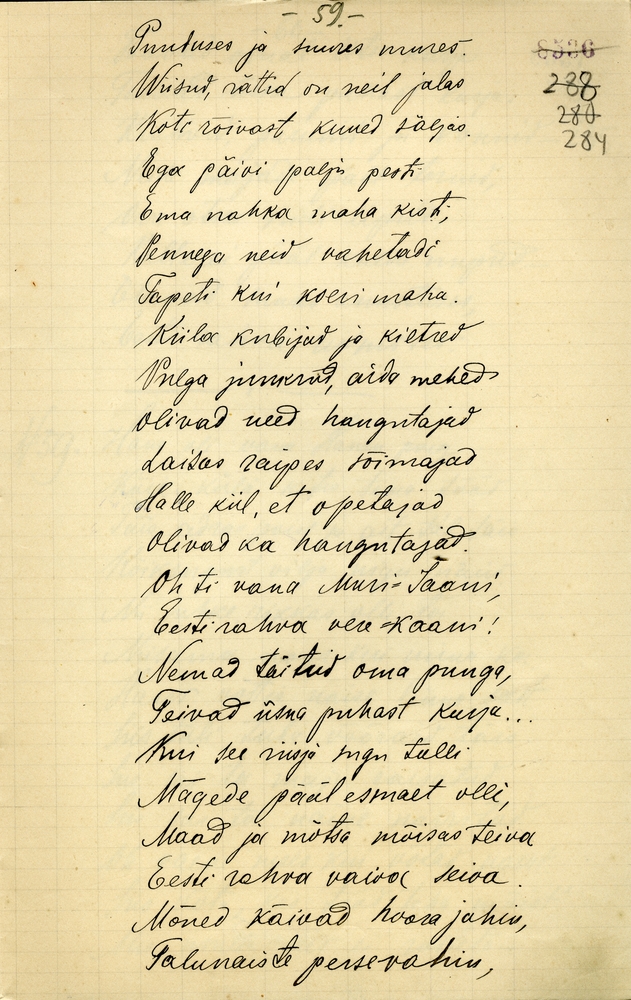 - 59. -
8536
288
280
284
Puuduses ja suures mures.
Wiisud, rättid on neil jalas
Koti rõivast kuued säljas.
Ega päivi palju pesti
Ema nahka maha kisti,
Pennega neid vahetadi
Tapeti kui koeri maha.
Küla kubijad ja kiltred
Pulga junkrud, aida mehed
Olivad need hangutajad
Laisas raipes sõimajad
Halle kül, et opetajad
Olivad ka hangutajad.
Oh ti vana Muri-Jaani,
Eesti rahva vere-kaani!
Nemad täitsid oma punga,
Teivad üsna puhast kurja...
Kui see riisja sugu tulli
Mägede pääl esmalt olli,
Maad ja mõtsa mõisas teiva
Eesti rahva vaiva seiva.
Mõned käivad hoora jahin,
Talunaiste persevahin,